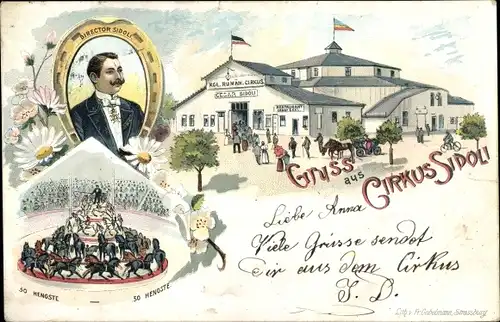 DIRECTOR SIDOLI
KGL. RUMÄN. CIRKUS
CESAR SIDOLI
RESTAURANT
Gruss
aus
CIRKUS SIDOLI
Liebe Anna
Viele Grüsse sendet
Dir aus dem Cirkus
J. D.
50 HENGSTE — 50 HENGSTE
Lith. v.
Strassburg